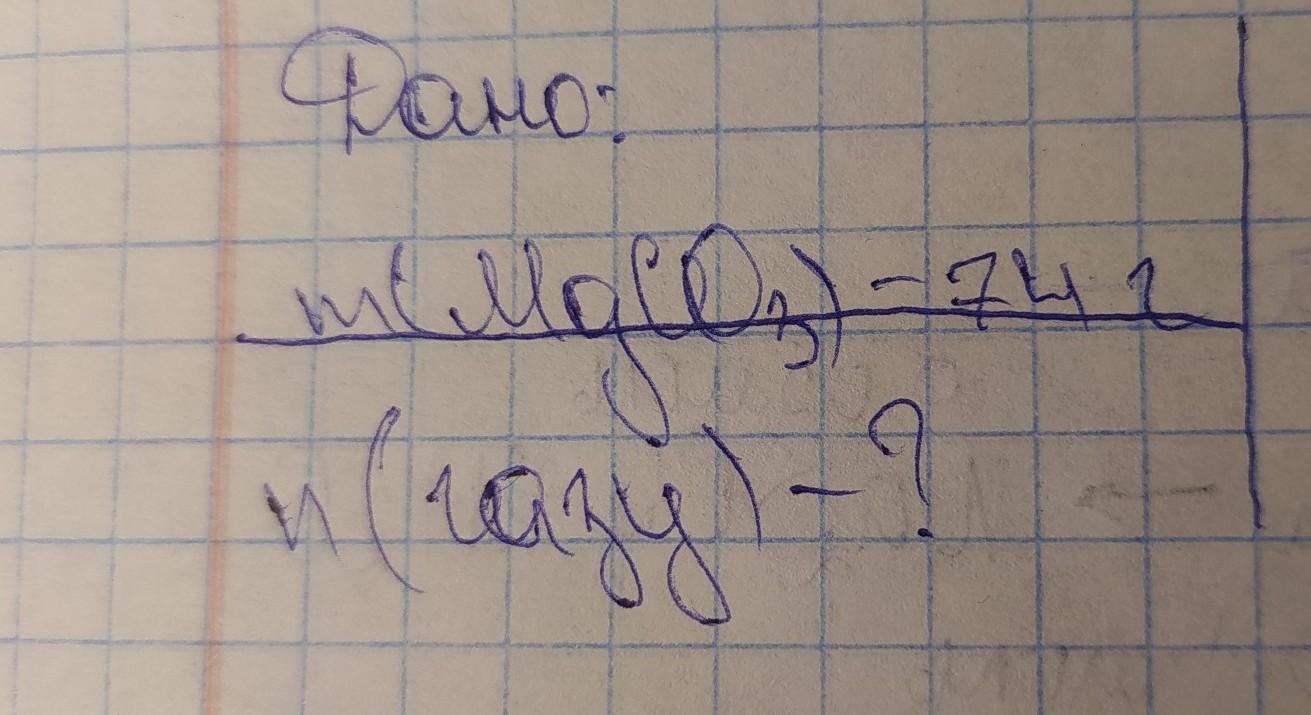 Дано:
m(MgCO₃) = 74 г
n(газу) - ?